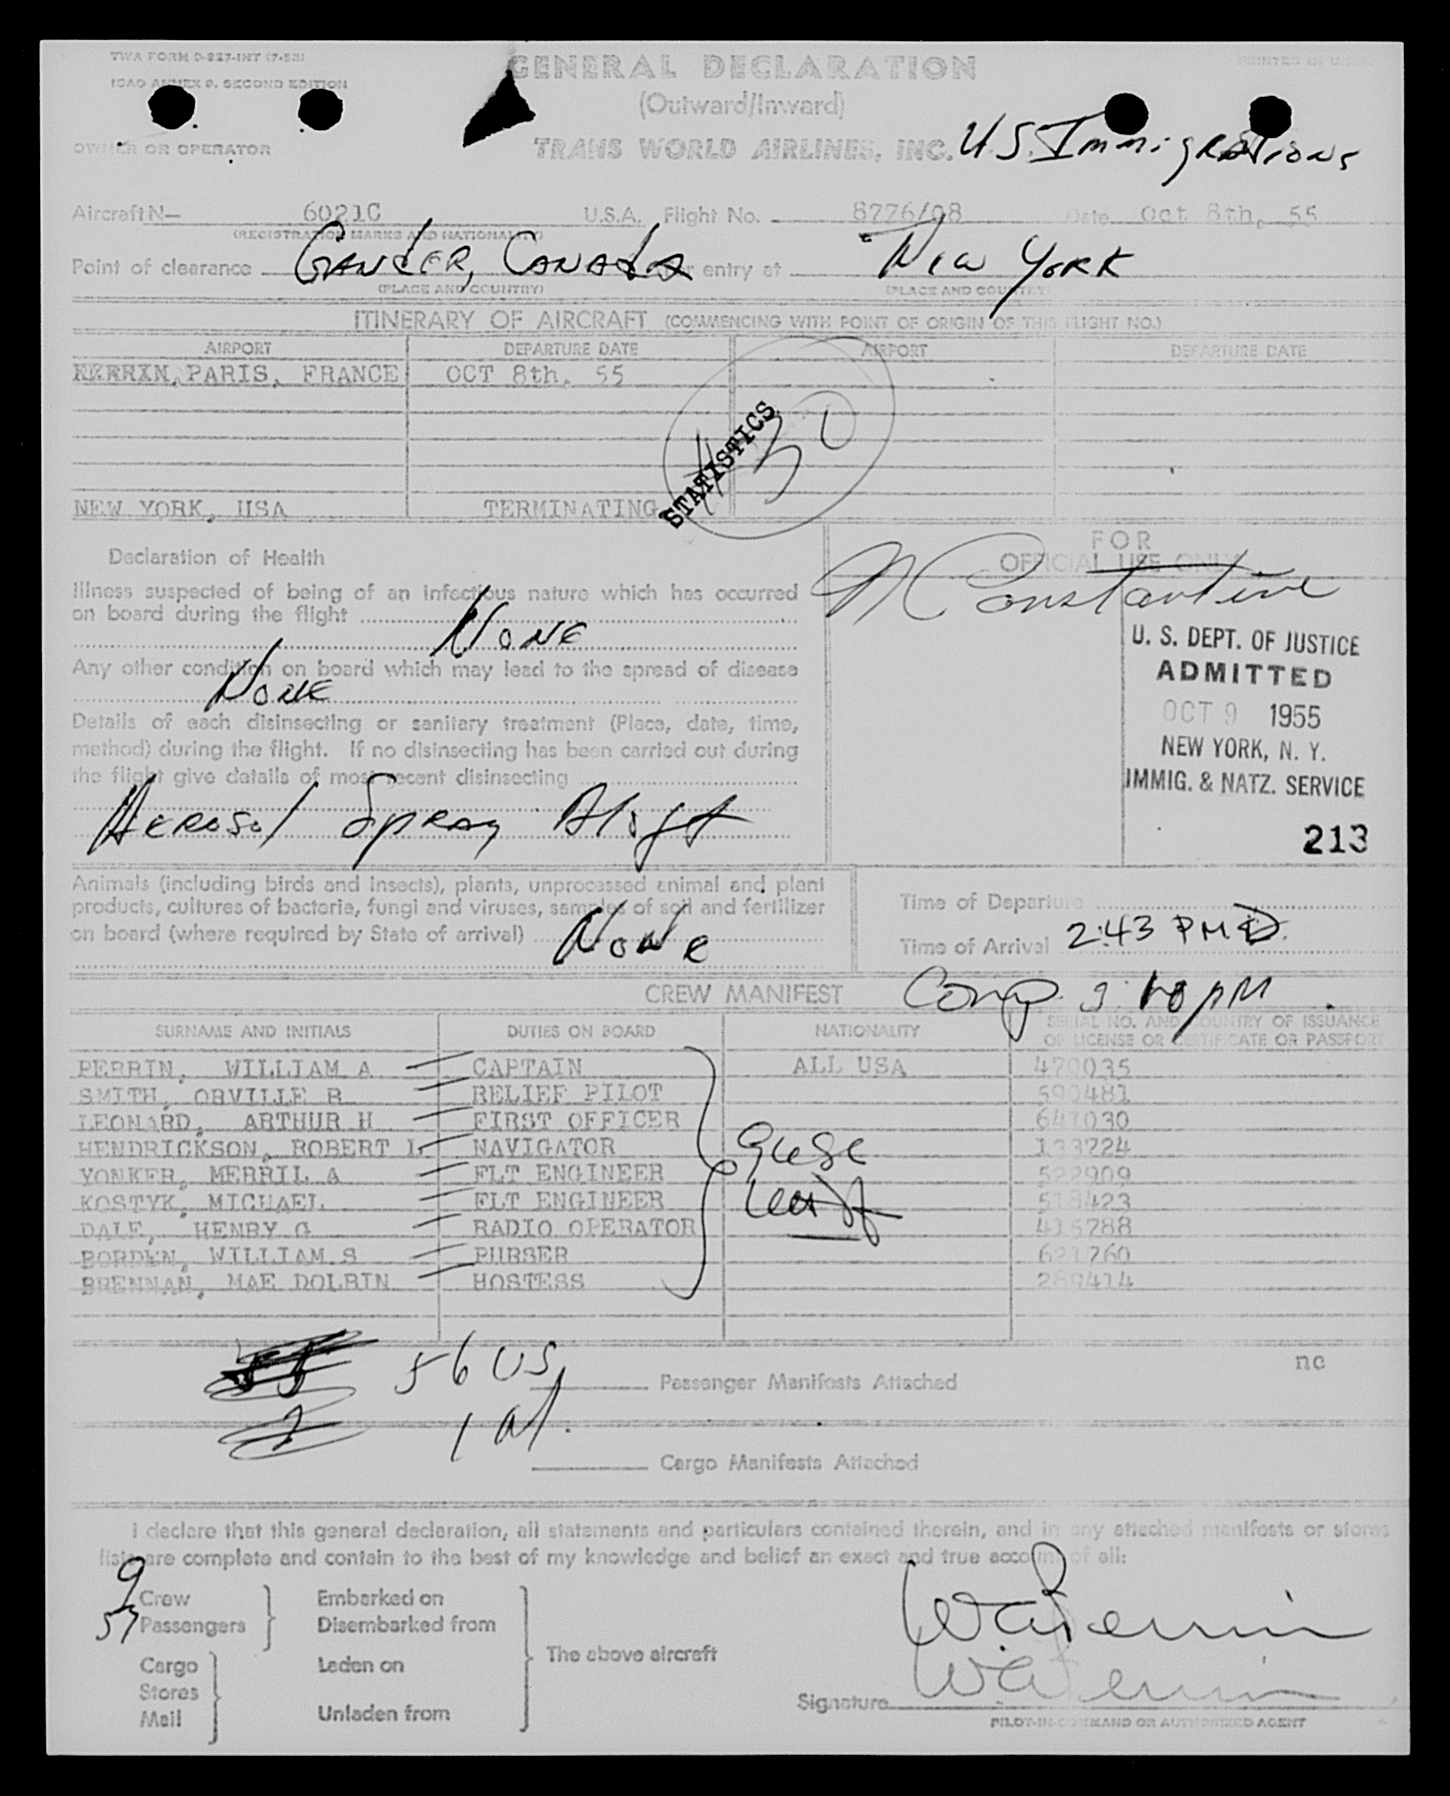 TWA FORM D-827-INT (7-53)
ICAO ANNEX 9, SECOND EDITION
GENERAL DECLARATION
(Outward/Inward)
OWNER OR OPERATOR
TRANS WORLD AIRLINES, INC.
U.S. Immigrations
Aircraft N— 6021C U.S.A. Flight No. 8776/08 Date Oct 8th, 55
(REGISTRATION MARKS AND NATIONALITY)
Point of clearance Gander, Canada entry at New York
(PLACE AND COUNTRY) (PLACE AND COUNTRY)
ITINERARY OF AIRCRAFT (COMMENCING WITH POINT OF ORIGIN OF THIS FLIGHT NO.)
AIRPORT DEPARTURE DATE AIRPORT DEPARTURE DATE
PARIS, FRANCE OCT 8th, 55
STATISTICS
NEW YORK, USA TERMINATING
Declaration of Health
Illness suspected of being of an infectious nature which has occurred
on board during the flight None
Any other condition on board which may lead to the spread of disease
None
Details of each disinsecting or sanitary treatment (Place, date, time,
method) during the flight. If no disinsecting has been carried out during
the flight give details of most recent disinsecting
Aerosol Spray Aloft
FOR
OFFICIAL USE ONLY
M Constantine
U. S. DEPT. OF JUSTICE
ADMITTED
OCT 9 1955
NEW YORK, N. Y.
IMMIG. & NATZ. SERVICE
213
Animals (including birds and insects), plants, unprocessed animal and plant
products, cultures of bacteria, fungi and viruses, samples of soil and fertilizer
on board (where required by State of arrival) None
Time of Departure
Time of Arrival 2:43 PM
CREW MANIFEST
SURNAME AND INITIALS DUTIES ON BOARD NATIONALITY SERIAL NO. AND COUNTRY OF ISSUANCE
OF LICENSE OR CERTIFICATE OR PASSPORT
PERRIN, WILLIAM A CAPTAIN ALL USA 470035
SMITH, ORVILLE R RELIEF PILOT 590481
LEONARD, ARTHUR H FIRST OFFICER 641030
HENDRICKSON, ROBERT L NAVIGATOR 133224
YONKER, MERRIL A FLT ENGINEER 522909
KOSTYK, MICHAEL FLT ENGINEER 518423
DALE, HENRY G RADIO OPERATOR 416788
BORDEN, WILLIAM S PURSER 621760
BRENNAN, MAE DOLRIN HOSTESS 289414
nc
56 US
Passenger Manifests Attached
1 al.
Cargo Manifests Attached
I declare that this general declaration, all statements and particulars contained therein, and in any attached manifests or stores
lists are complete and contain to the best of my knowledge and belief an exact and true account of all:
9 Crew
57 Passengers
Embarked on
Disembarked from
Cargo
Stores
Mail
Laden on
Unladen from
The above aircraft
W A Perrin
W A Perrin
Signature
PILOT-IN-COMMAND OR AUTHORIZED AGENT